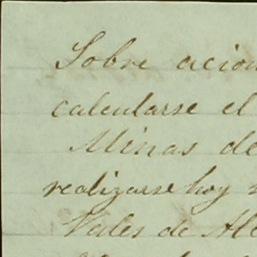 Sobre acion
calcularse el
Minas de
realizarse hoy
Vales de Al